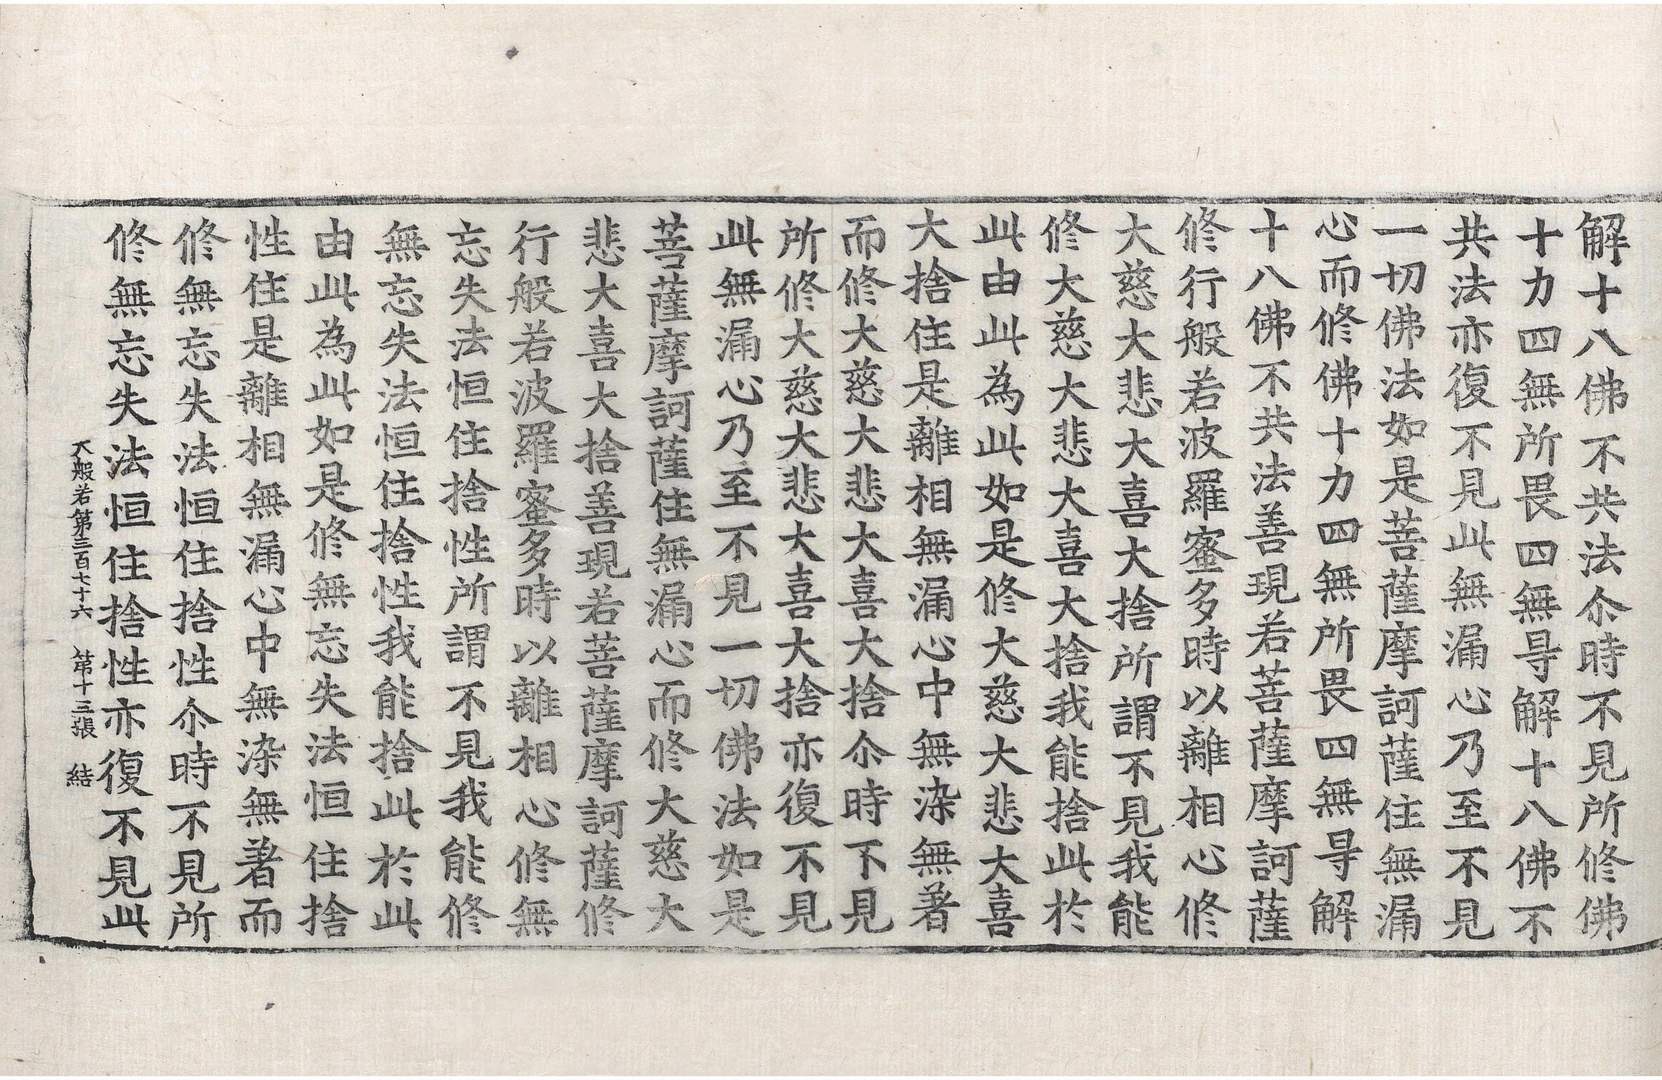 解十八佛不共法尒時不見所修佛
十力四無所畏四無㝵解十八佛不
共法亦復不見此無漏心乃至不見
一切佛法如是菩薩摩訶薩住無漏
心而修佛十力四無所畏四無㝵解
十八佛不共法善現若菩薩摩訶薩
修行般若波羅蜜多時以離相心修
大慈大悲大喜大捨所謂不見我能
修大慈大悲大喜大捨我能捨此於
此由此為此如是修大慈大悲大喜
大捨住是離相無漏心中無染無著
而修大慈大悲大喜大捨尒時不見
所修大慈大悲大喜大捨亦復不見
此無漏心乃至不見一切佛法如是
菩薩摩訶薩住無漏心而修大慈大
悲大喜大捨善現若菩薩摩訶薩修
行般若波羅蜜多時以離相心修無
忘失法恒住捨性所謂不見我能修
無忘失法恒住捨性我能捨此於此
由此為此如是修無忘失法恒住捨
性住是離相無漏心中無染無著而
修無忘失法恒住捨性尒時不見所
修無忘失法恒住捨性亦復不見此
大般若第三百七十六 第十三張 結